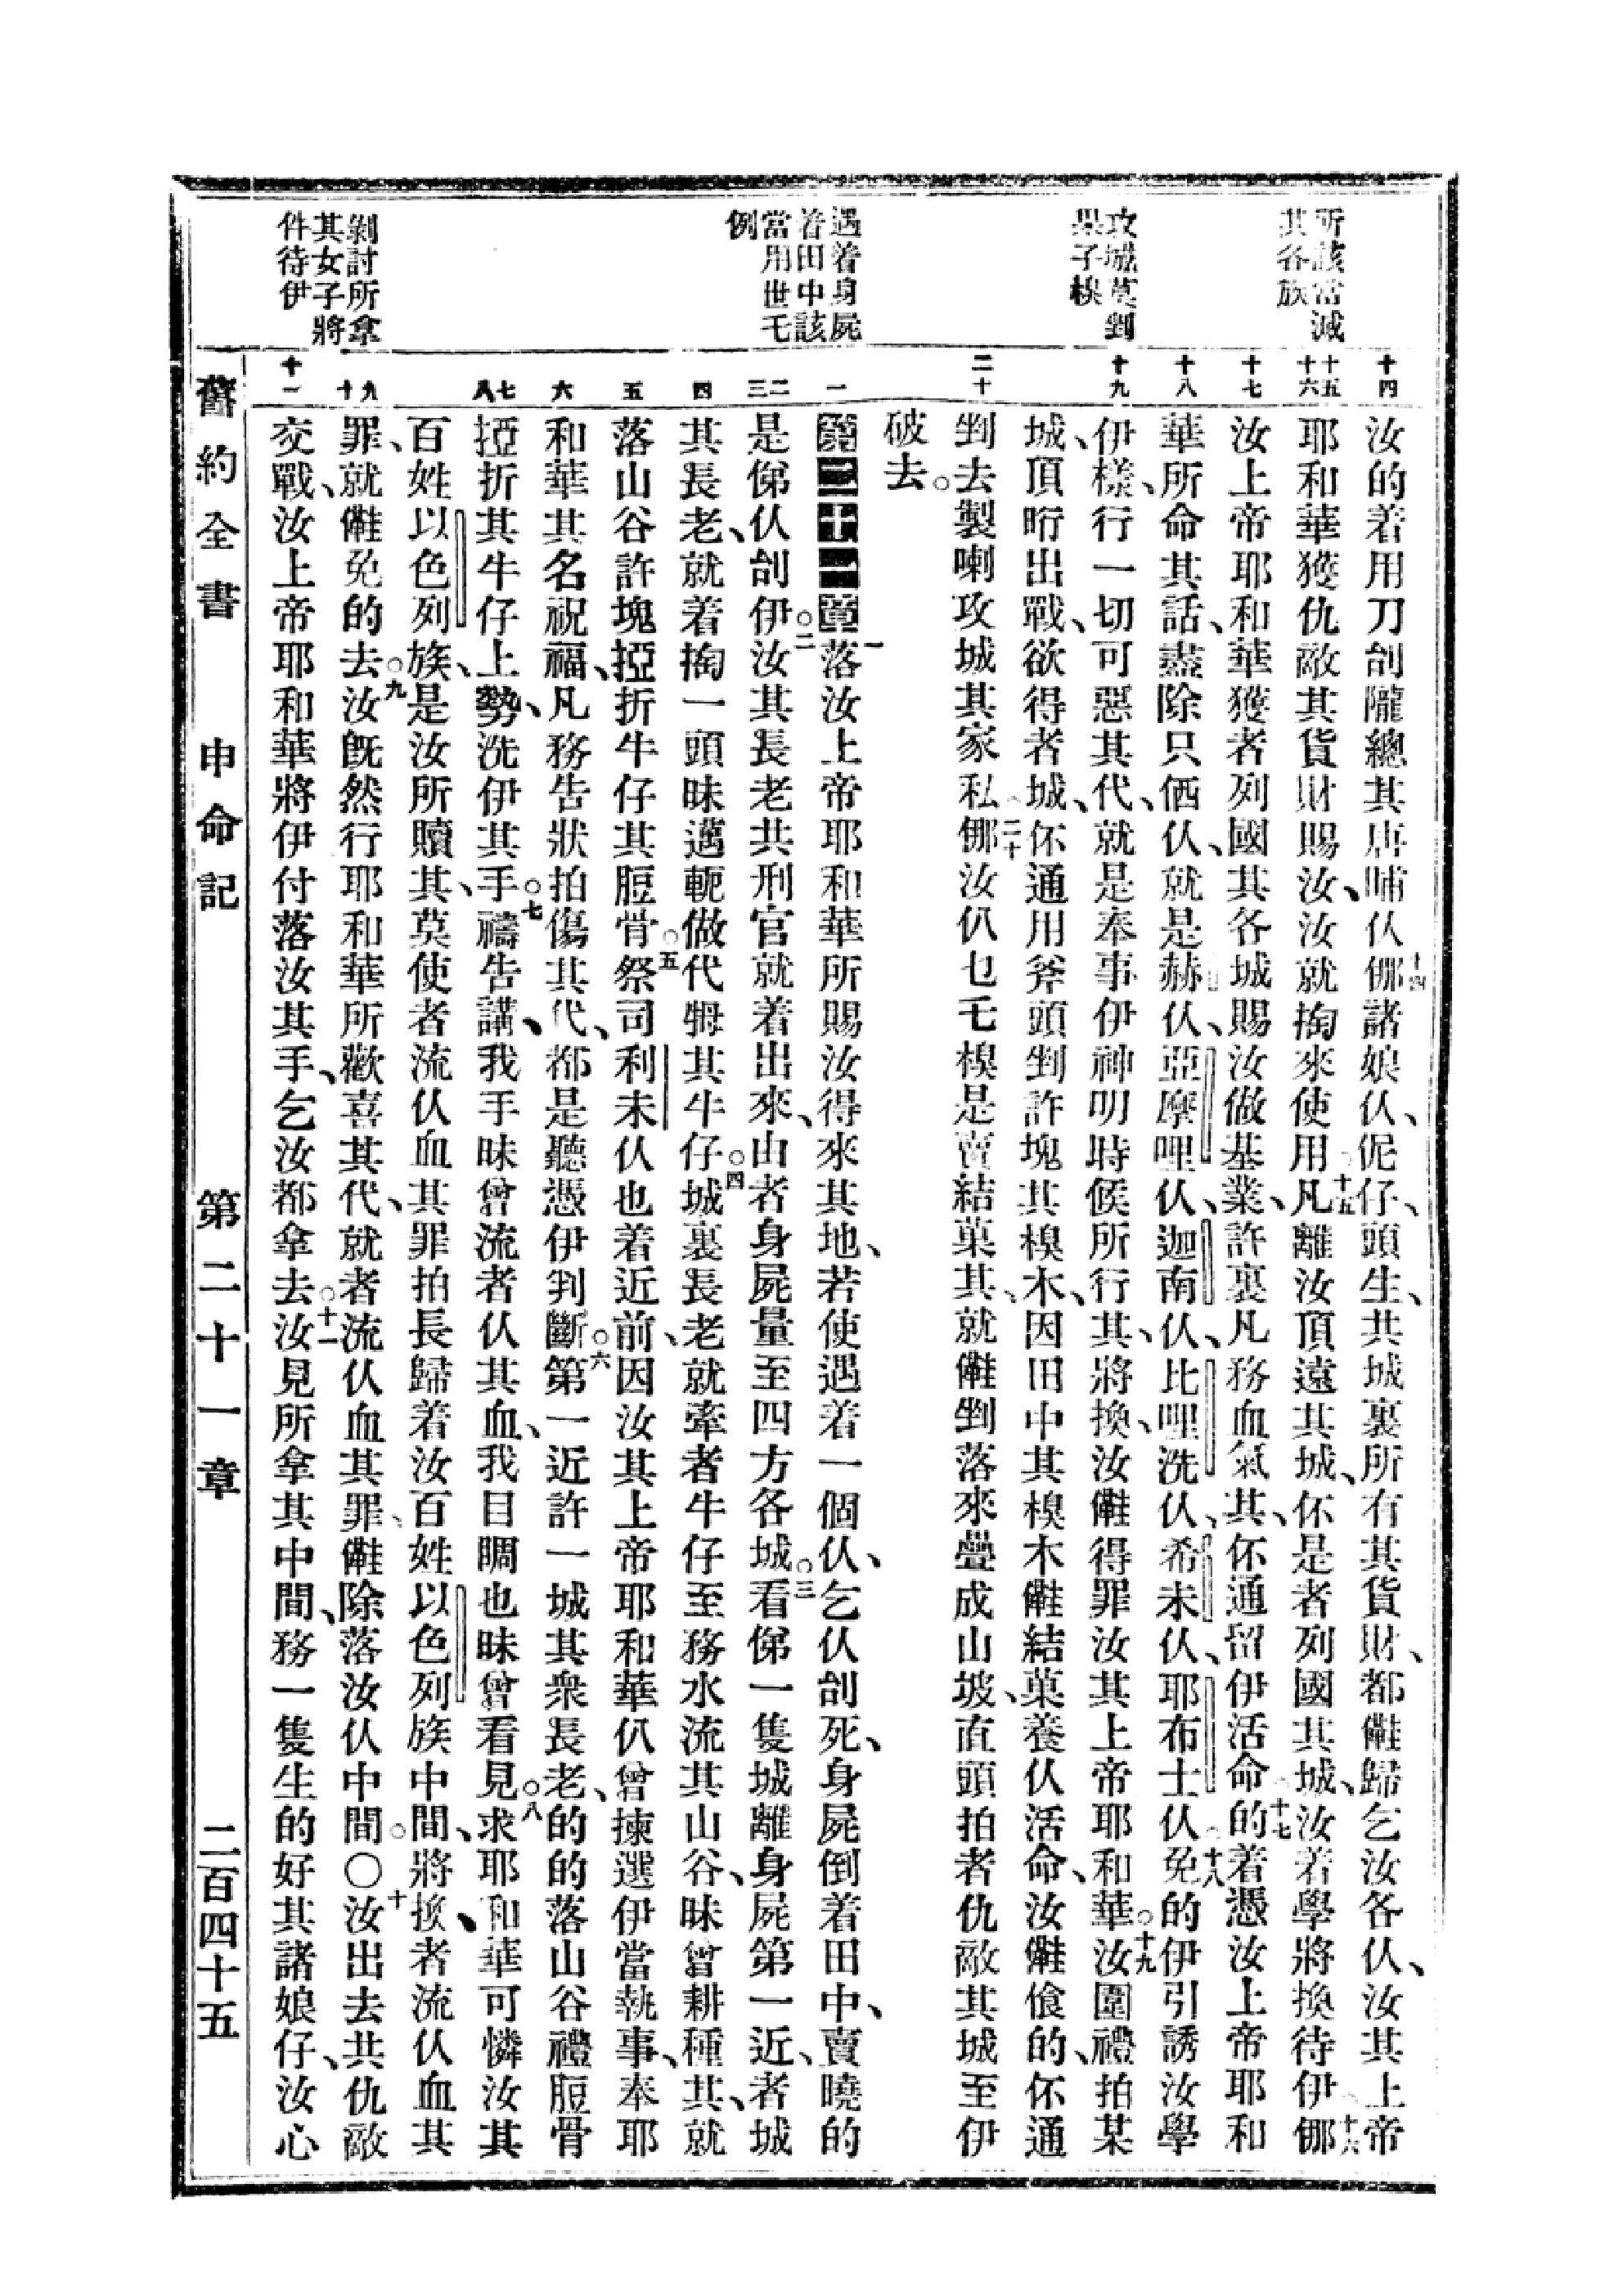 所該當滅
其各族
攻城莫剉
果子模
遇着身屍
着田中該
當用世乇
例
剿討所拿
其女子將
件待伊
十四
十五
十六
十七
十八
十九
二十
一
二
三
四
五
六
七
八
九
十
十一
汝的着用刀刣隴總其唐晡仈十四㑚諸娘仈、伲仔、頭生、共城裏所有其貨財、都㒕歸乞汝各仈、汝其上帝
耶和華獲仇敵其貨財賜汝、汝就掏來使用十五凡離汝頂遠其城、伓是者列國其城、汝着學將換待伊十六㑚
汝上帝耶和華獲者列國其各城賜汝做基業、許裏凡務血氣其、伓通留伊活命十七的着憑汝上帝耶和
華所命其話、盡除只㑚仈、就是赫仈、亞摩哩仈、迦南仈、比哩洗仈、希未仈、耶布士仈十八免的伊引誘汝學
伊樣、行一切可惡其代、就是奉事伊神明時候所行其、將換、汝㒕得罪汝其上帝耶和華。十九汝圍禮拍某
城、頂昕出戰、欲得者城、伓通用斧頭剉許塊其模木、因田中其模木㒕結菓養仈活命、汝㒕飡的、伓通
剉去製喇攻城其家私二十㑚汝仈乜乇模是賣結菓其、就㒕剉落來疊成山坡、直頭拍者仇敵其城至伊
破去。
第二十一章一落汝上帝耶和華所賜汝得來其地、若使遇着一個仈、乞仈刣死、身屍倒着田中、賣曉的
是俤仈刣伊。二汝其長老共刑官就着出來、由者身屍量至四方各城。三看俤一隻城離身屍第一近、者城
其長老、就着掏一頭昧邁軛做代牳其牛仔。四城裏長老就牽者牛仔至務水流其山谷、昧曾耕種其、就
落山谷許塊挜折牛仔其脰骨。五祭司利未仈也着近前、因汝其上帝耶和華仈曾揀選伊當執事、奉耶
和華其名祝福、凡務告狀拍傷其代、都是聽憑伊判斷。六第一近許一城其衆長老、的的落山谷禮脰骨
挜折其牛仔上勢、洗伊其手。七禱告講、我手昧曾流者仈其血、我目睭也昧曾看見。八求耶和華可憐汝其
百姓以色列族、是汝所贖其、莫使者流仈血其罪拍長歸着汝百姓以色列族中間、將換、者流仈血其
罪、就㒕免的去。九汝旣然行耶和華所歡喜其代、就者流仈血其罪、㒕除落汝仈中間。〇十汝出去共仇敵
交戰、汝上帝耶和華將伊付落汝其手、乞汝都拿去。十一汝見所拿其中間、務一隻生的好其諸娘仔、汝心
舊約全書 申命記 第二十一章 二百四十五